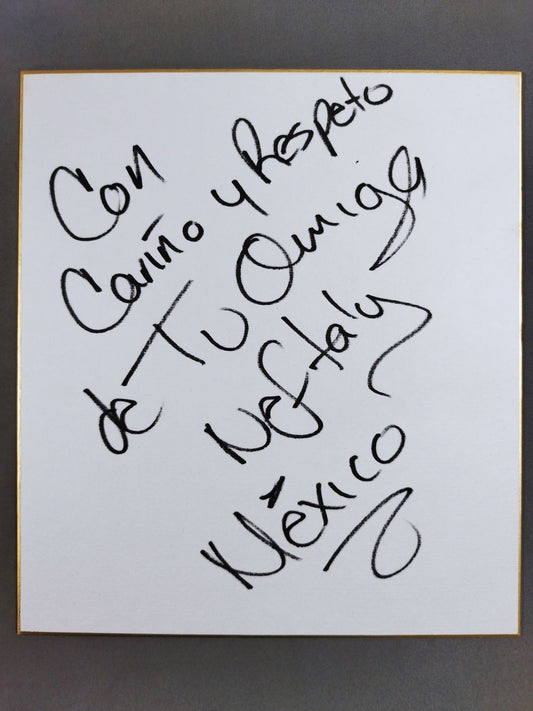 Con
Cariño y Respeto
de Tu Amiga
Neftaly
México